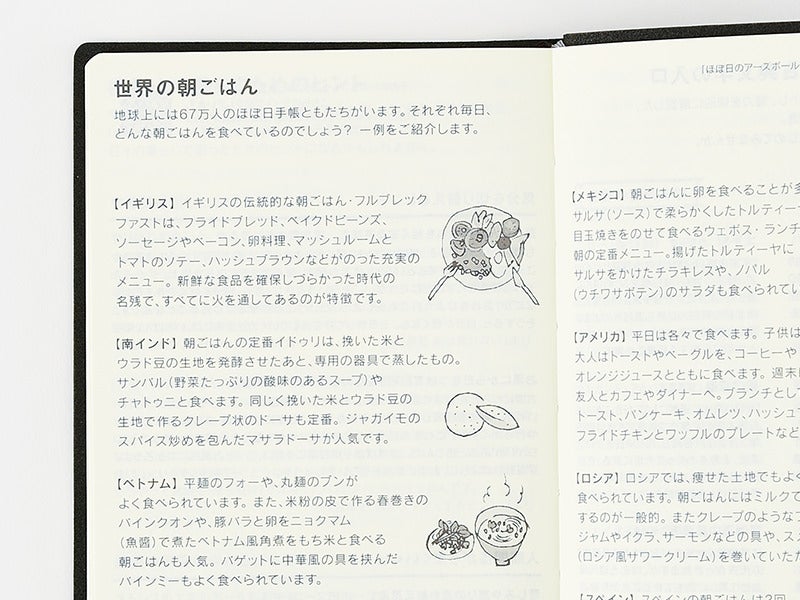 世界の朝ごはん
地球上には67万人のほぼ日手帳ともだちがいます。それぞれ毎日、
どんな朝ごはんを食べているのでしょう? 一例をご紹介します。
【イギリス】 イギリスの伝統的な朝ごはん・フルブレック
ファストは、フライドブレッド、ベイクドビーンズ、
ソーセージやベーコン、卵料理、マッシュルームと
トマトのソテー、ハッシュブラウンなどがのった充実の
メニュー。 新鮮な食品を確保しづらかった時代の
名残で、すべてに火を通してあるのが特徴です。
【南インド】 朝ごはんの定番イドゥリは、挽いた米と
ウラド豆の生地を発酵させたあと、専用の器具で蒸したもの。
サンバル(野菜たっぷりの酸味のあるスープ)や
チャトゥニと食べます。 同じく挽いた米とウラド豆の
生地で作るクレープ状のドーサも定番。 ジャガイモの
スパイス炒めを包んだマサラドーサが人気です。
【ベトナム】 平麺のフォーや、丸麺のブンが
よく食べられています。 また、米粉の皮で作る春巻きの
バインクオンや、豚バラと卵をニョクマム
(魚醤)で煮たベトナム風角煮をもち米と食べる
朝ごはんも人気。 バゲットに中華風の具を挟んだ
バインミーもよく食べられています。
「ほぼ日のアースボール
【メキシコ】 朝ごはんに卵を食べることが多
サルサ(ソース)で柔らかくしたトルティー
目玉焼きをのせて食べるウェボス・ランチ
朝の定番メニュー。揚げたトルティーヤに
サルサをかけたチラキレスや、ノパル
(ウチワサボテン)のサラダも食べられてい
【アメリカ】 平日は各々で食べます。 子供は
大人はトーストやベーグルを、コーヒーや
オレンジジュースとともに食べます。 週末
友人とカフェやダイナーへ。ブランチとし
トースト、パンケーキ、オムレツ、ハッシュ
フライドチキンとワッフルのプレートなど
【ロシア】 ロシアでは、痩せた土地でもよく
食べられています。 朝ごはんにはミルクで
するのが一般的。 またクレープのような
ジャムやイクラ、サーモンなどの具や、ス
(ロシア風サワークリーム)を巻いていた
【スペイン】 スペインの朝ごはんは2回